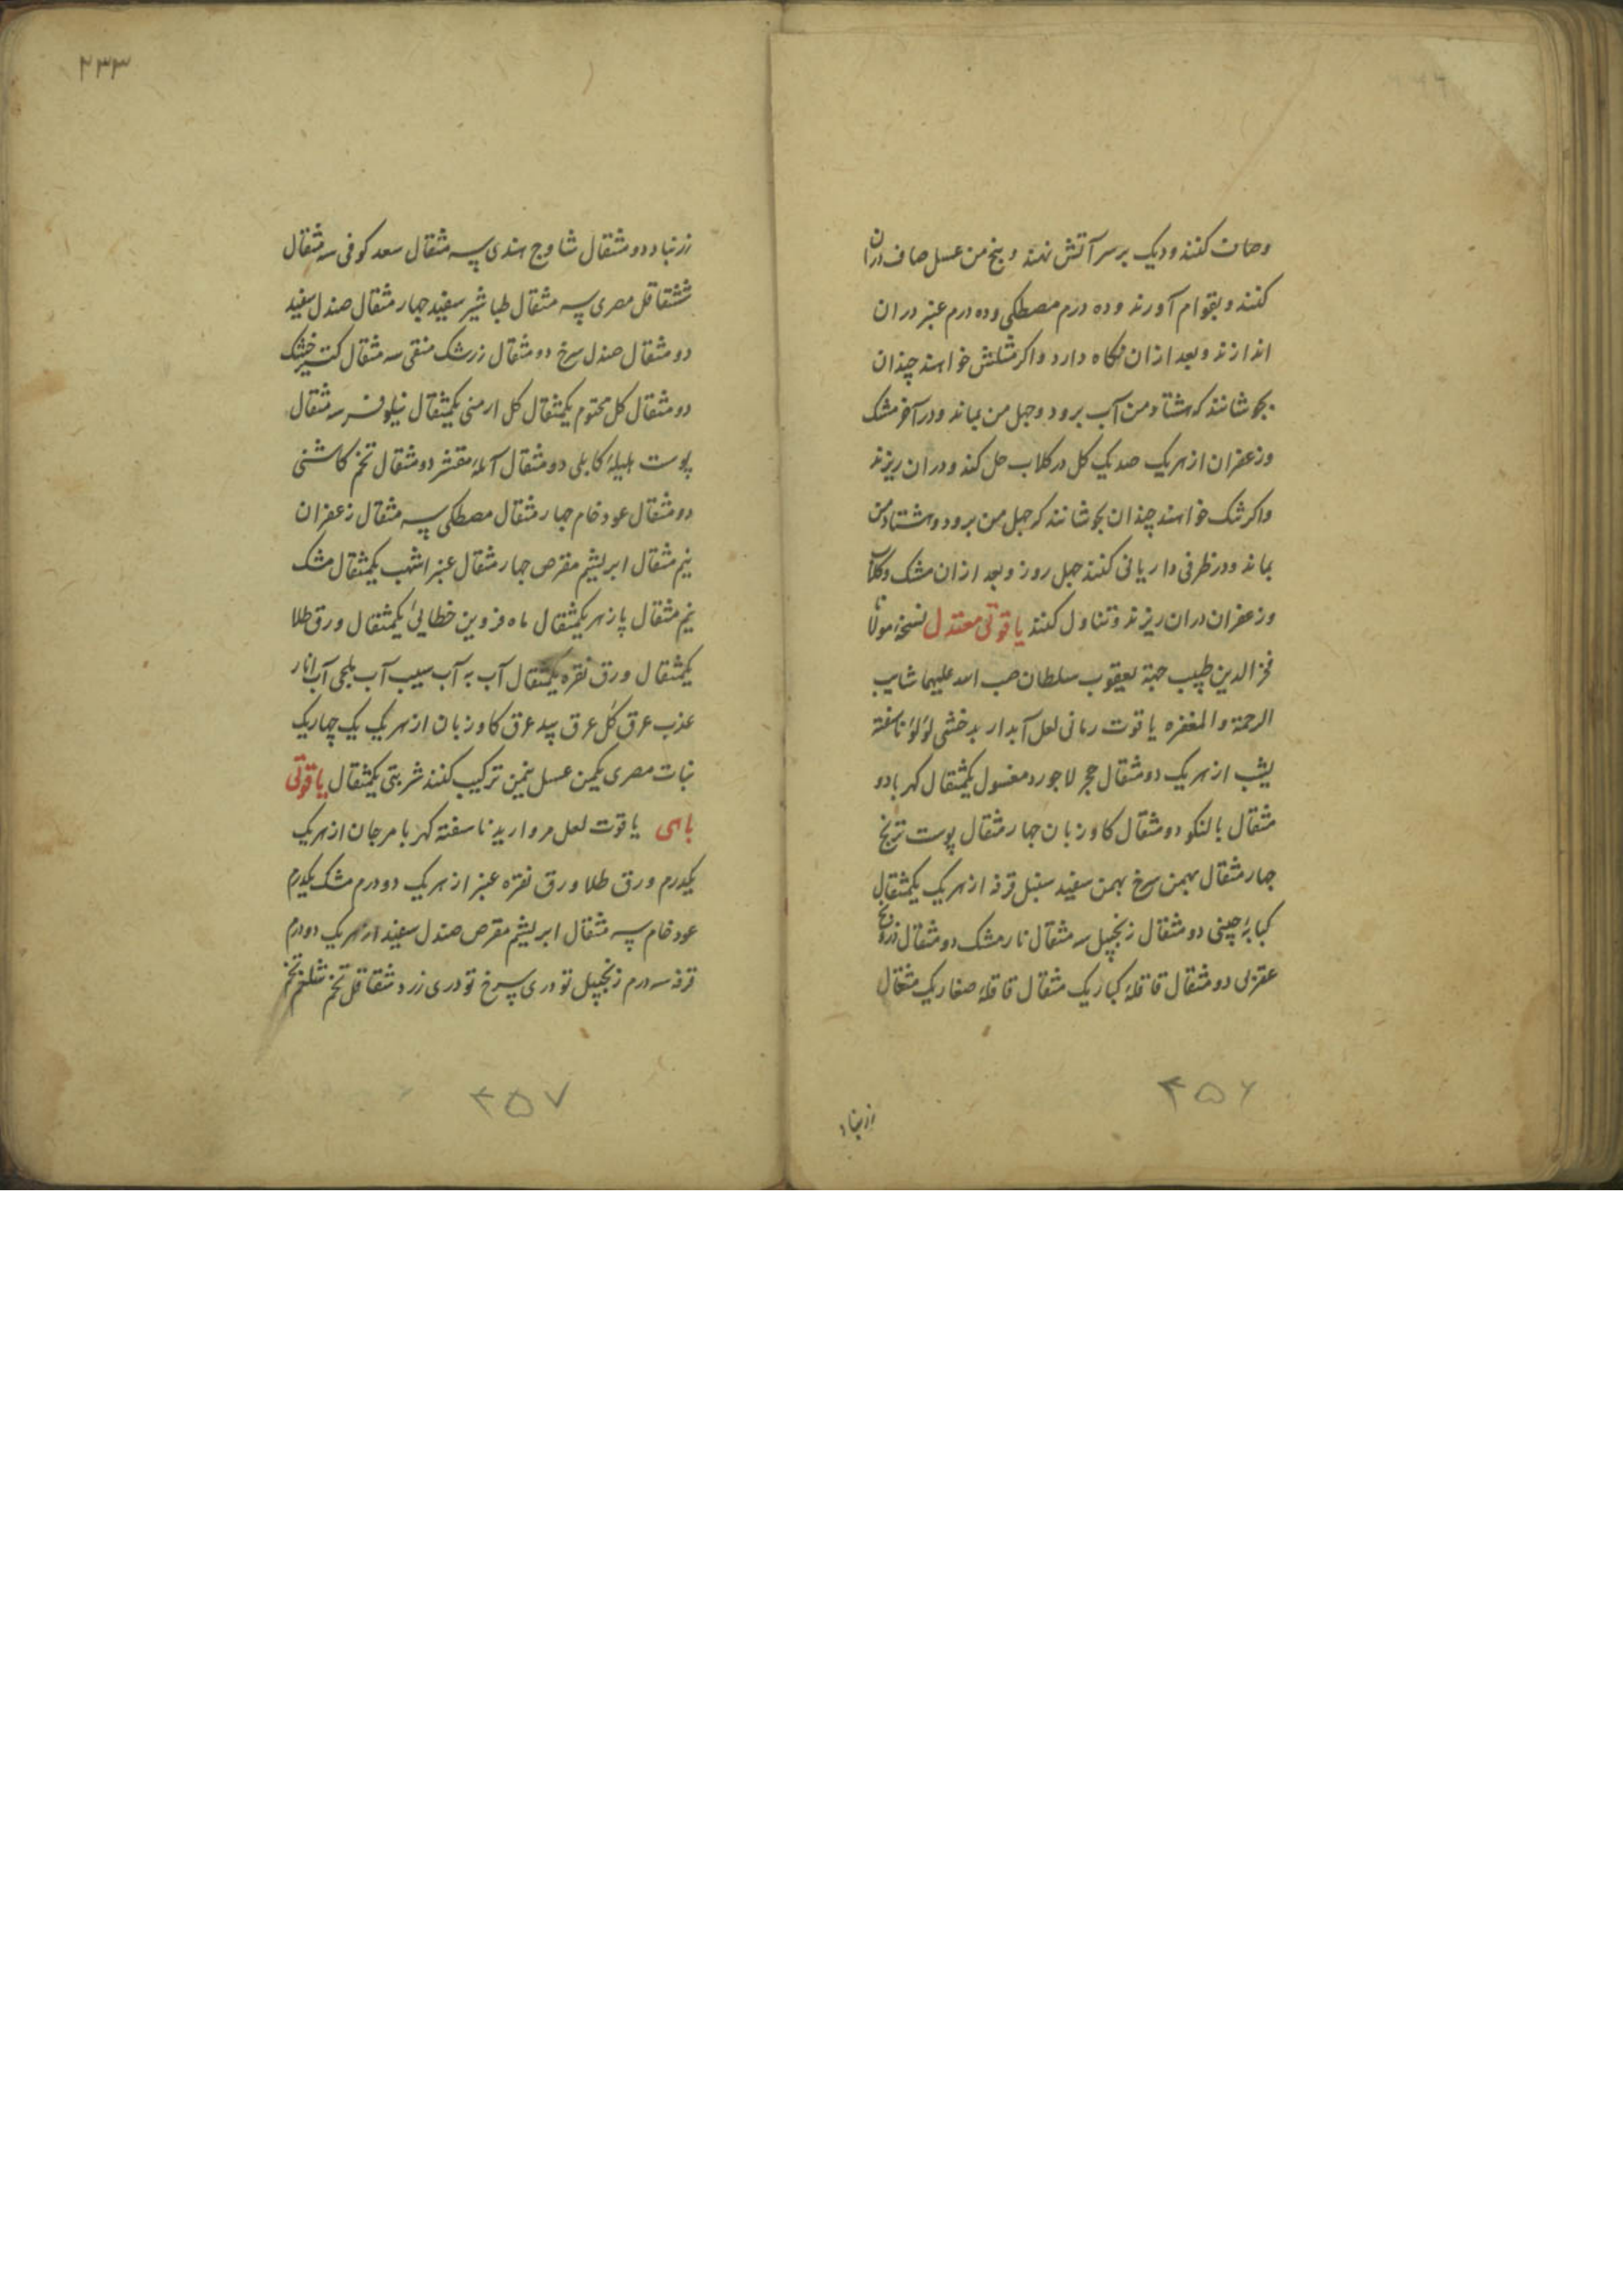 وصاف کنند و دیک بر سر آتش نهند و پنج من عسل صاف دران
کنند و بقوام آورند و ده درم مصطکی و ده درم عنبر دران
اندازند و بعد ازان نکاه دارد و اکر مثلثش خواهند چندان
بجوشانند که هشتاد من آب برود و چهل من بماند و در آخر مشک
و زعفران از هریک صدیک کل در کلاب حل کند و دران ریزند
و اکر تنک خواهند چندان بجوشانند که چهل من برود و هشتاد من
بماند و در ظرفی داریانی کنند چهل روز و بعد ازان مشک و کلاب
و زعفران دران ریزند و تناول کنند یاقوتی معتدل نسخهٔ مولانا
فخر الدین طبیب جهة یعقوب سلطان صب الله علیهما شابیب
الرحمة و المغفره یاقوت رمانی لعل آبدار بدخشی لؤلؤ ناسفته
یشب از هریک دو مثقال حجر لاجورد مغسول یکمثقال کهربا دو
مثقال بالنکو دو مثقال کاوزبان چهار مثقال پوست ترنج
چهار مثقال بهمن سرخ بهمن سفید سنبل قرفه از هریک یکمثقال
کبابهٔ چینی دو مثقال زنجبیل سه مثقال نارمشک دو مثقال درونج
عقربی دو مثقال قاقلهٔ کبار یک مثقال قاقلهٔ صغار یک مثقال
۴۵۶
زرنباد
۲۳۳
زرنباد دو مثقال شاوج هندی سه مثقال سعد کوفی سه مثقال
شقاقل مصری سه مثقال طباشیر سفید چهار مثقال صندل سفید
دو مثقال صندل سرخ دو مثقال زرشک منقی سه مثقال خشک
دو مثقال کل مختوم یکمثقال کل ارمنی یکمثقال نیلوفر سه مثقال
پوست هلیلهٔ کابلی دو مثقال آملهٔ مقشر دو مثقال تخم کاسنی
دو مثقال عود خام چهار مثقال مصطکی سه مثقال زعفران
نیم مثقال ابریشم مقرص چهار مثقال عنبر اشهب یکمثقال مشک
نیم مثقال پازهر یکمثقال ماه فروین خطایی یکمثقال ورق طلا
یکمثقال ورق نقره یکمثقال آب به آب سیب آب بلحی آب انار
عذب عرق کل عرق بید عرق کاوزبان از هریک یک چهاریک
نبات مصری یکمن عسل نیمن ترکیب کنند شربتی یکمثقال یاقوتی
باهی یاقوت لعل مروارید ناسفته کهربا مرجان از هریک
یکدرم ورق طلا ورق نقره عنبر از هریک دو درم مشک یکدرم
عود خام سه مثقال ابریشم مقرص صندل سفید از هریک دو درم
قرفه سه درم زنجبیل تودری سرخ تودری زرد شقاقل تخم شلغم تخم
۴۵۷